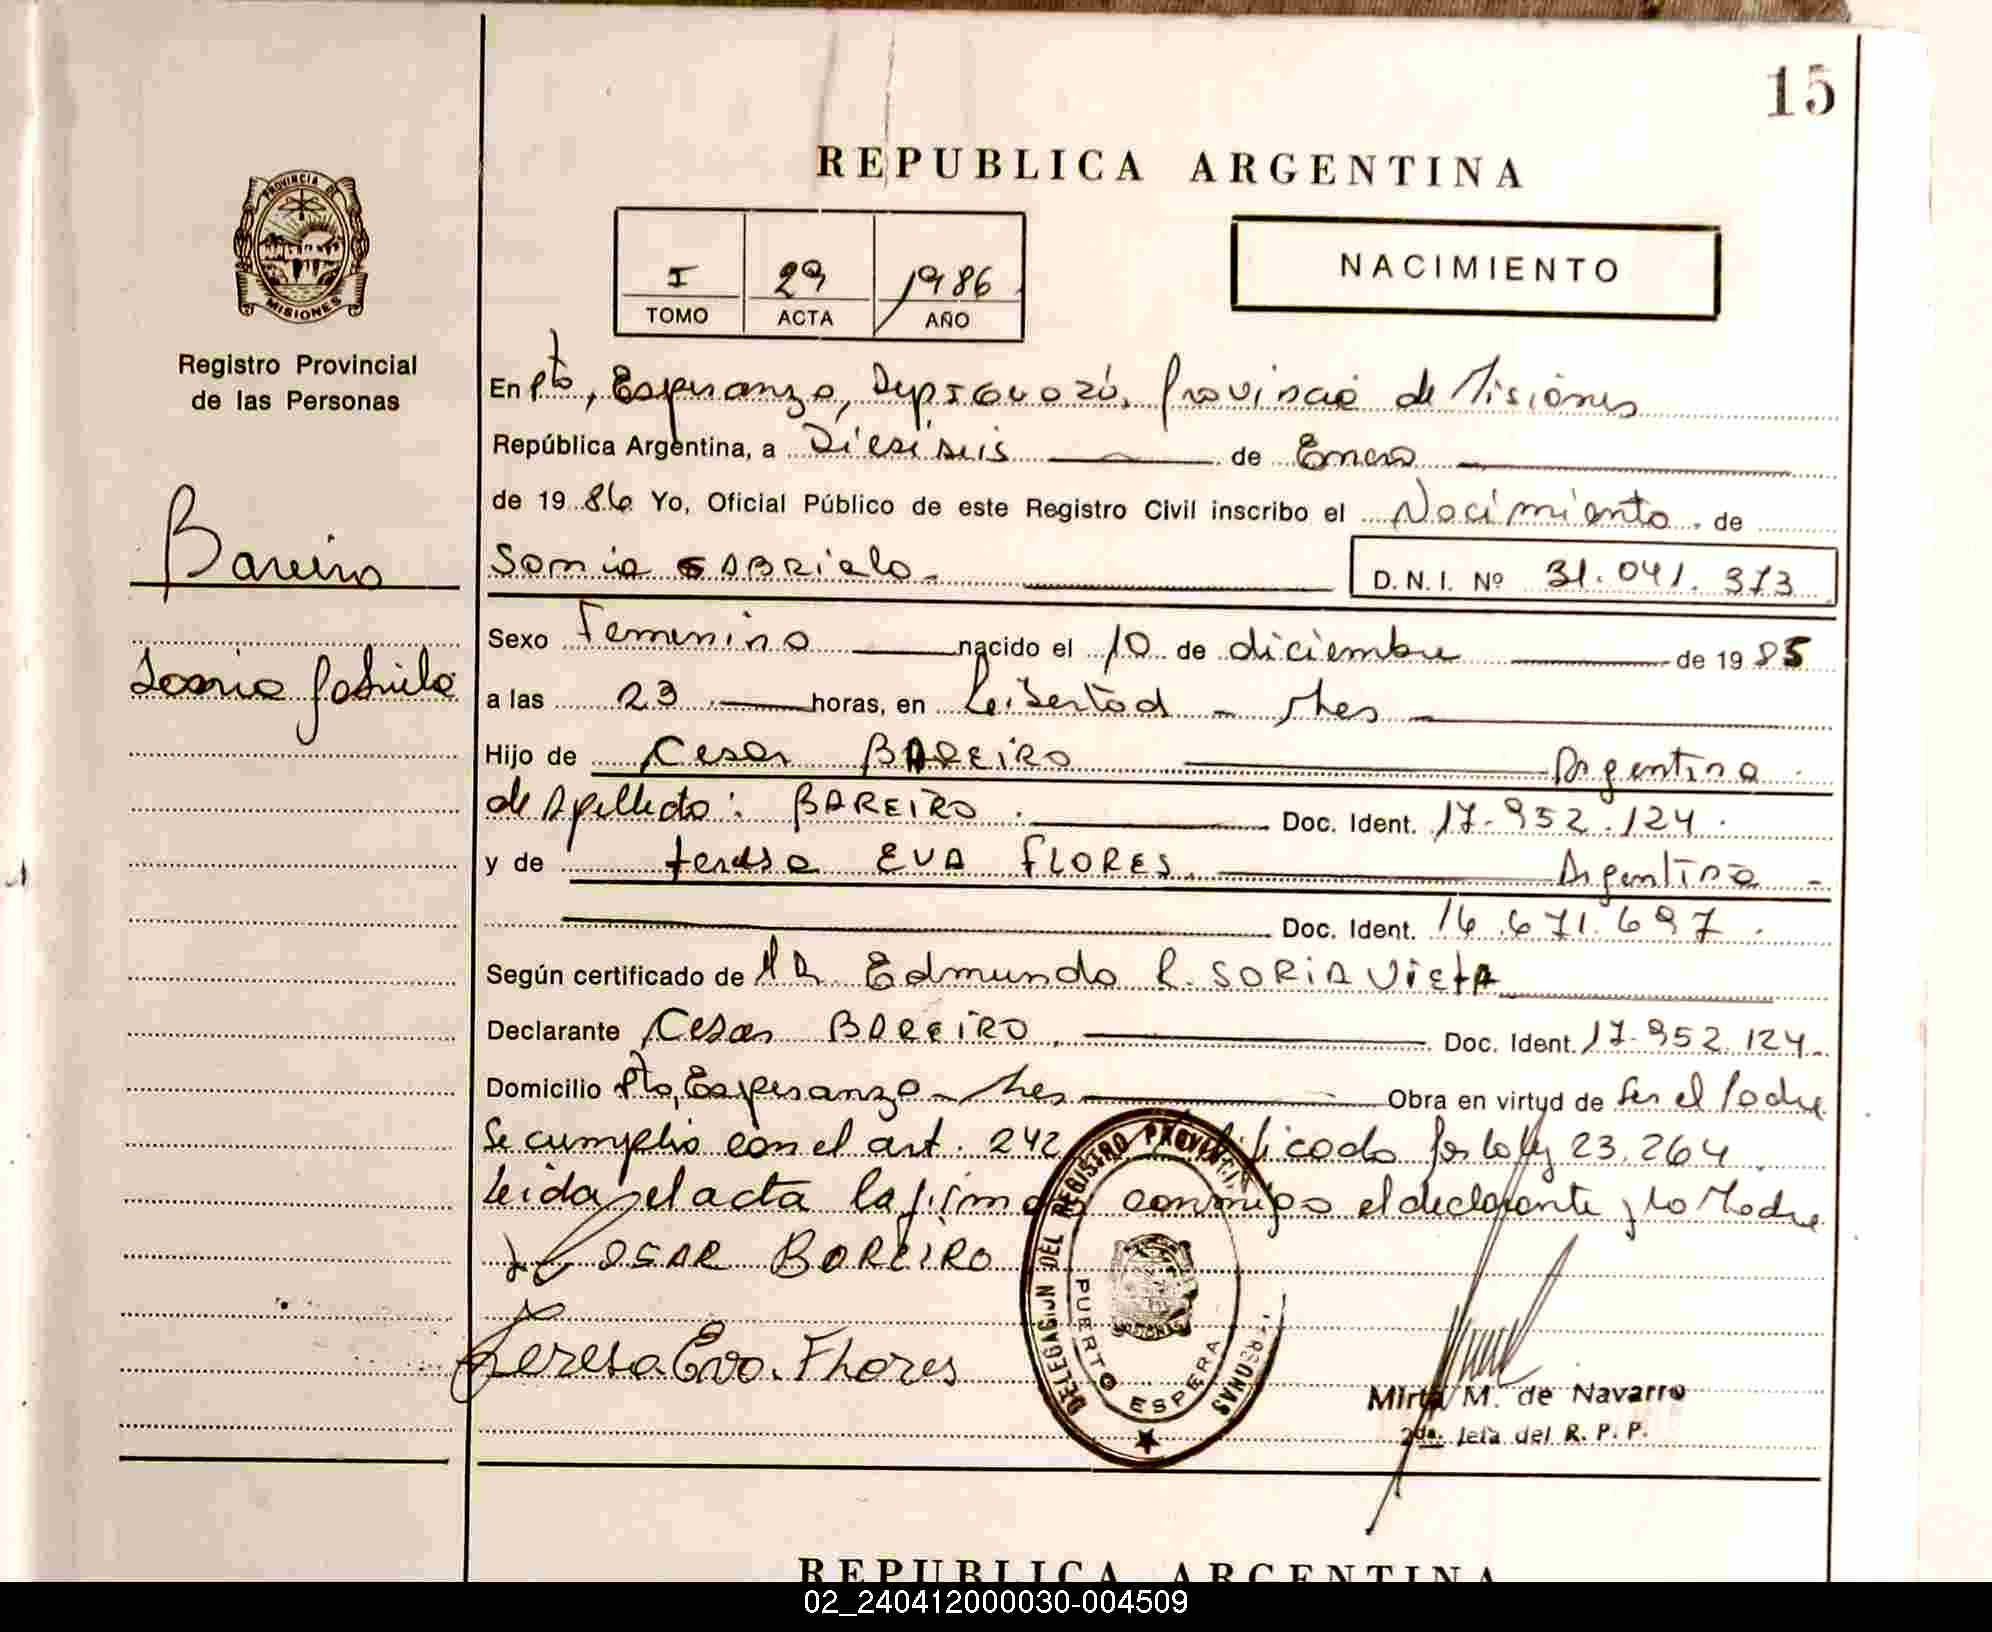 15
REPUBLICA ARGENTINA
I 29 1986
TOMO ACTA AÑO
NACIMIENTO
PROVINCIA DE
MISIONES
Registro Provincial
de las Personas
Bareiro
Sonia Gabriela
En Pto, Esperanza, Dep Iguazú, Provincia de Misiones
República Argentina, a Diesiseis de Enero
de 1986 Yo, Oficial Público de este Registro Civil inscribo el Nacimiento de
Sonia GABRiela D. N. I. Nº 31.041.373
Sexo Femenino nacido el 10 de diciembre de 1985
a las 23 horas, en Libertad - Mnes -
Hijo de Cesar BAREiRO Argentina
de Apellido: BAREiRO Doc. Ident. 17.952.124
y de teresa EVA FLORES Argentina
Doc. Ident. 16.671.697
Según certificado de Edmundo R. SORiA VietA
Declarante Cesar BAREiRO Doc. Ident. 17.952.124
Domicilio Pto, Esperanza - Mnes Obra en virtud de Ser el Padre
Se cumplio con el art. 242 por la ley 23.264
Leida el acta la firman conmigo el declarante y la Madre
CESAR BAREiRO
Teresa Eva Flores
DELEGACION DEL REGISTRO PROVINCIAL
PUERTO ESPERA
Mirta M. de Navarro
2da. Jefa del R. P. P.
REPUBLICA ARGENTINA
02_240412000030-004509